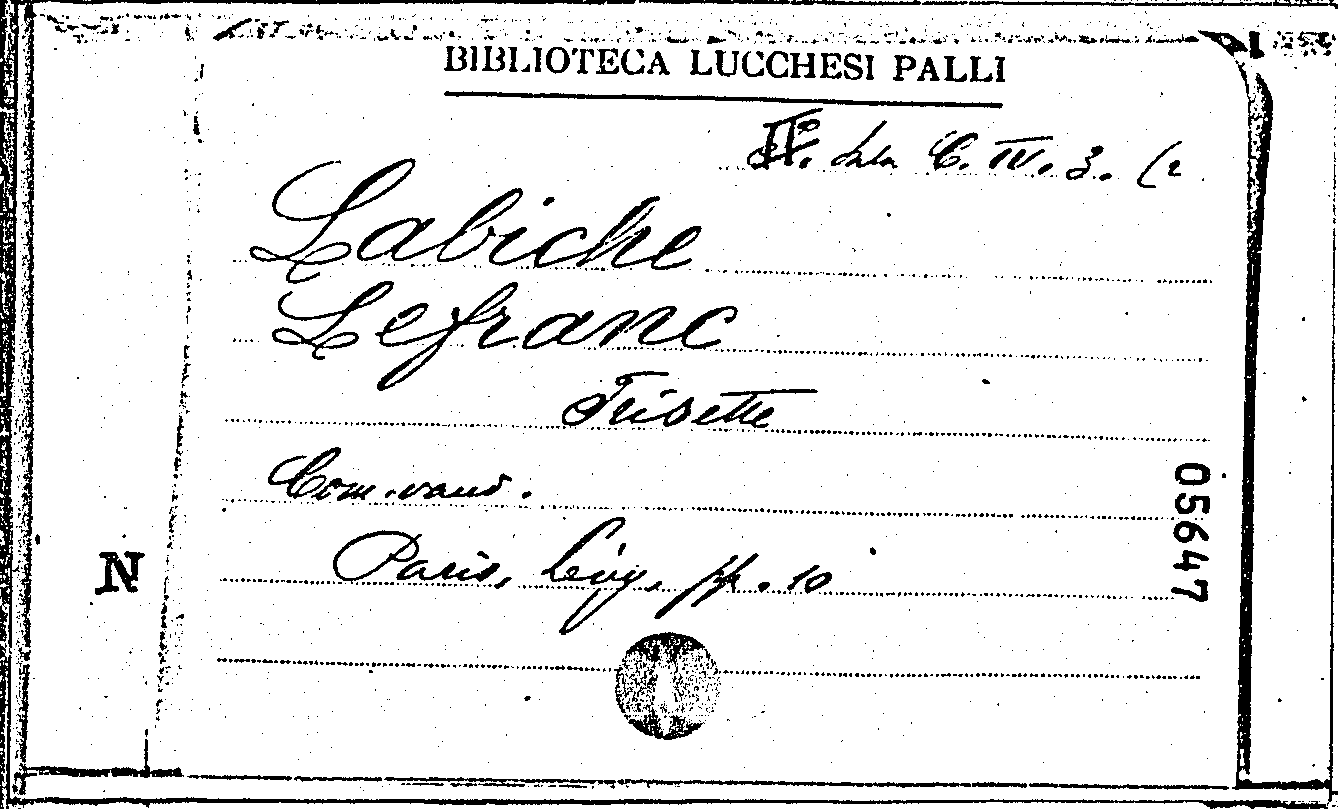 BIBLIOTECA LUCCHESI PALLI
II. Sala C. IV. 3. (2
Labiche
Lefranc
Frisette
Com. vaud.
Paris, Lévy, pp. 10
05647
N